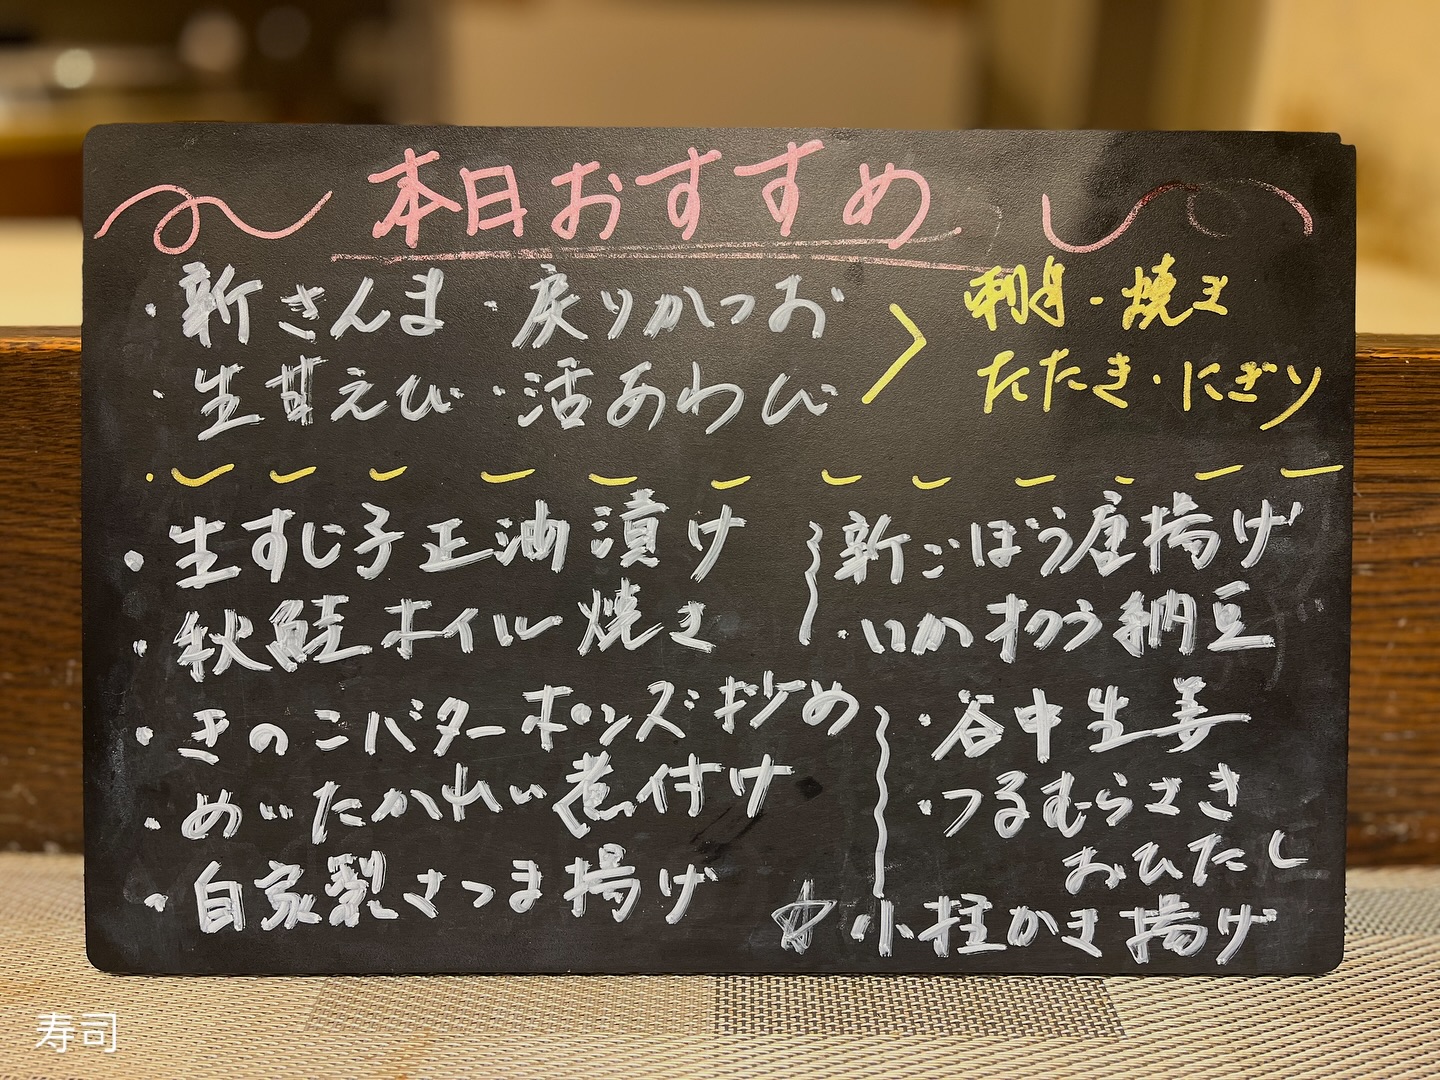 本日おすすめ
・新さんま ・戻りかつお
・生甘えび ・活あわび
刺身・焼き
たたき・にぎり
・生すじ子正油漬け
・秋鮭ホイル焼き
・きのこバターポンズ炒め
・めいたかれい煮付け
・自家製さつま揚げ
新ごぼう唐揚げ
・いかオクラ納豆
・谷中生姜
・つるむらさき
おひたし
☆小柱かき揚げ
寿司